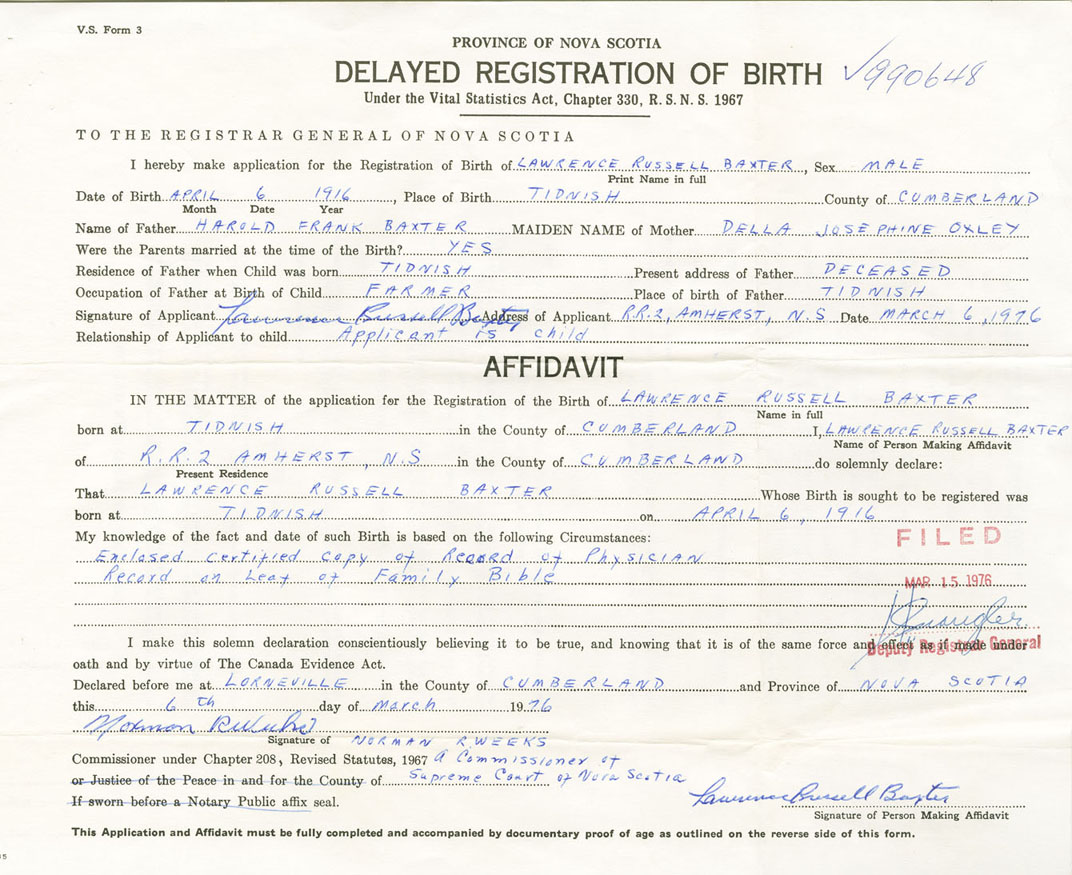 V.S. Form 3
PROVINCE OF NOVA SCOTIA
DELAYED REGISTRATION OF BIRTH √990648
Under the Vital Statistics Act, Chapter 330, R.S.N.S. 1967
TO THE REGISTRAR GENERAL OF NOVA SCOTIA
I hereby make application for the Registration of Birth of LAWRENCE RUSSELL BAXTER, Sex MALE
Print Name in full
Date of Birth APRIL 6 1916, Place of Birth TIDNISH County of CUMBERLAND
Month Date Year
Name of Father HAROLD FRANK BAXTER MAIDEN NAME of Mother DELLA JOSEPHINE OXLEY
Were the Parents married at the time of the Birth? YES
Residence of Father when Child was born TIDNISH Present address of Father DECEASED
Occupation of Father at Birth of Child FARMER Place of birth of Father TIDNISH
Signature of Applicant Lawrence Russell Baxter Address of Applicant R.R.2, AMHERST, N.S Date MARCH 6, 1976
Relationship of Applicant to child Applicant is child
AFFIDAVIT
IN THE MATTER of the application for the Registration of the Birth of LAWRENCE RUSSELL BAXTER
Name in full
born at TIDNISH in the County of CUMBERLAND I, LAWRENCE RUSSELL BAXTER
Name of Person Making Affidavit
of R.R.2 AMHERST, N.S in the County of CUMBERLAND do solemnly declare:
Present Residence
That LAWRENCE RUSSELL BAXTER Whose Birth is sought to be registered was
born at TIDNISH on APRIL 6, 1916
My knowledge of the fact and date of such Birth is based on the following Circumstances:
FILED
Enclosed certified copy of Record of Physician
Record on Leaf of Family Bible
MAR 15 1976
I make this solemn declaration conscientiously believing it to be true, and knowing that it is of the same force and effect as if made under
Deputy Registrar General
oath and by virtue of The Canada Evidence Act.
Declared before me at LORNEVILLE in the County of CUMBERLAND and Province of NOVA SCOTIA
this 6th day of March 1976
Norman R Weeks
Signature of NORMAN R WEEKS
Commissioner under Chapter 208, Revised Statutes, 1967 A Commissioner of
or Justice of the Peace in and for the County of Supreme Court of Nova Scotia
If sworn before a Notary Public affix seal.
Lawrence Russell Baxter
Signature of Person Making Affidavit
This Application and Affidavit must be fully completed and accompanied by documentary proof of age as outlined on the reverse side of this form.